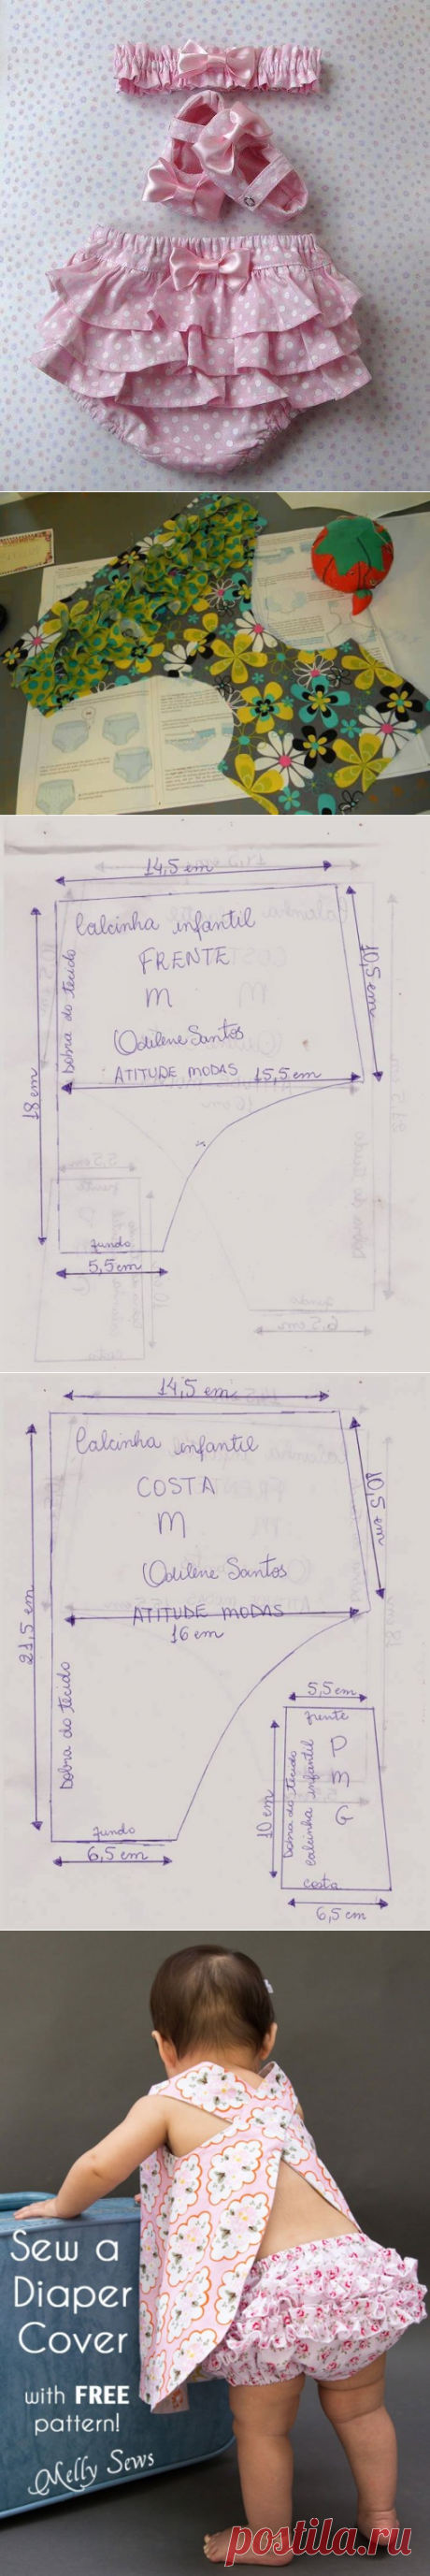 14,5 cm
Calcinha infantil
FRENTE
m
Odilene Santos
ATITUDE MODAS 15,5 cm
Dobra do tecido
18 cm
10,5 cm
fundo
5,5 cm
14,5 cm
Calcinha infantil
COSTA
m
Odilene Santos
ATITUDE MODAS
16 cm
10,5 cm
21,5 cm
Dobra do tecido
fundo
6,5 cm
5,5 cm
frente
Dobra do tecido
calcinha infantil
P
m
G
10 cm
costa
6,5 cm
Sew a
Diaper
Cover
with FREE
pattern!
Melly Sews
postila.ru